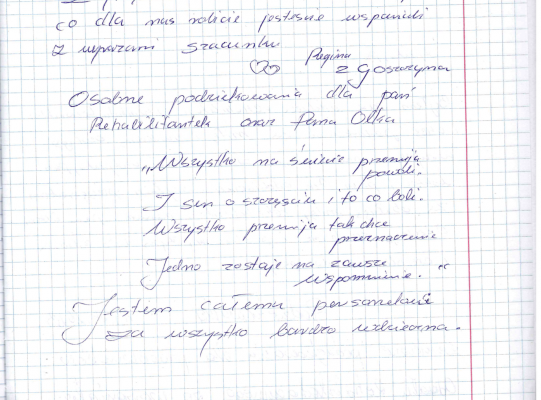 co dla nas robicie jesteście wspaniali
z wyrazami szacunku
Regina
z Goszczyna
Osobne podziękowania dla pań
Rehabilitantek oraz Pana Olka
„Wszystko na świecie przemija
powoli.
I sen o szczęściu i to co boli.
Wszystko przemija tak chce
przeznaczenie
Jedno zostaje na zawsze
wspomnienie. "
Jestem całemu personelowi
za wszystko bardzo wdzięczna.